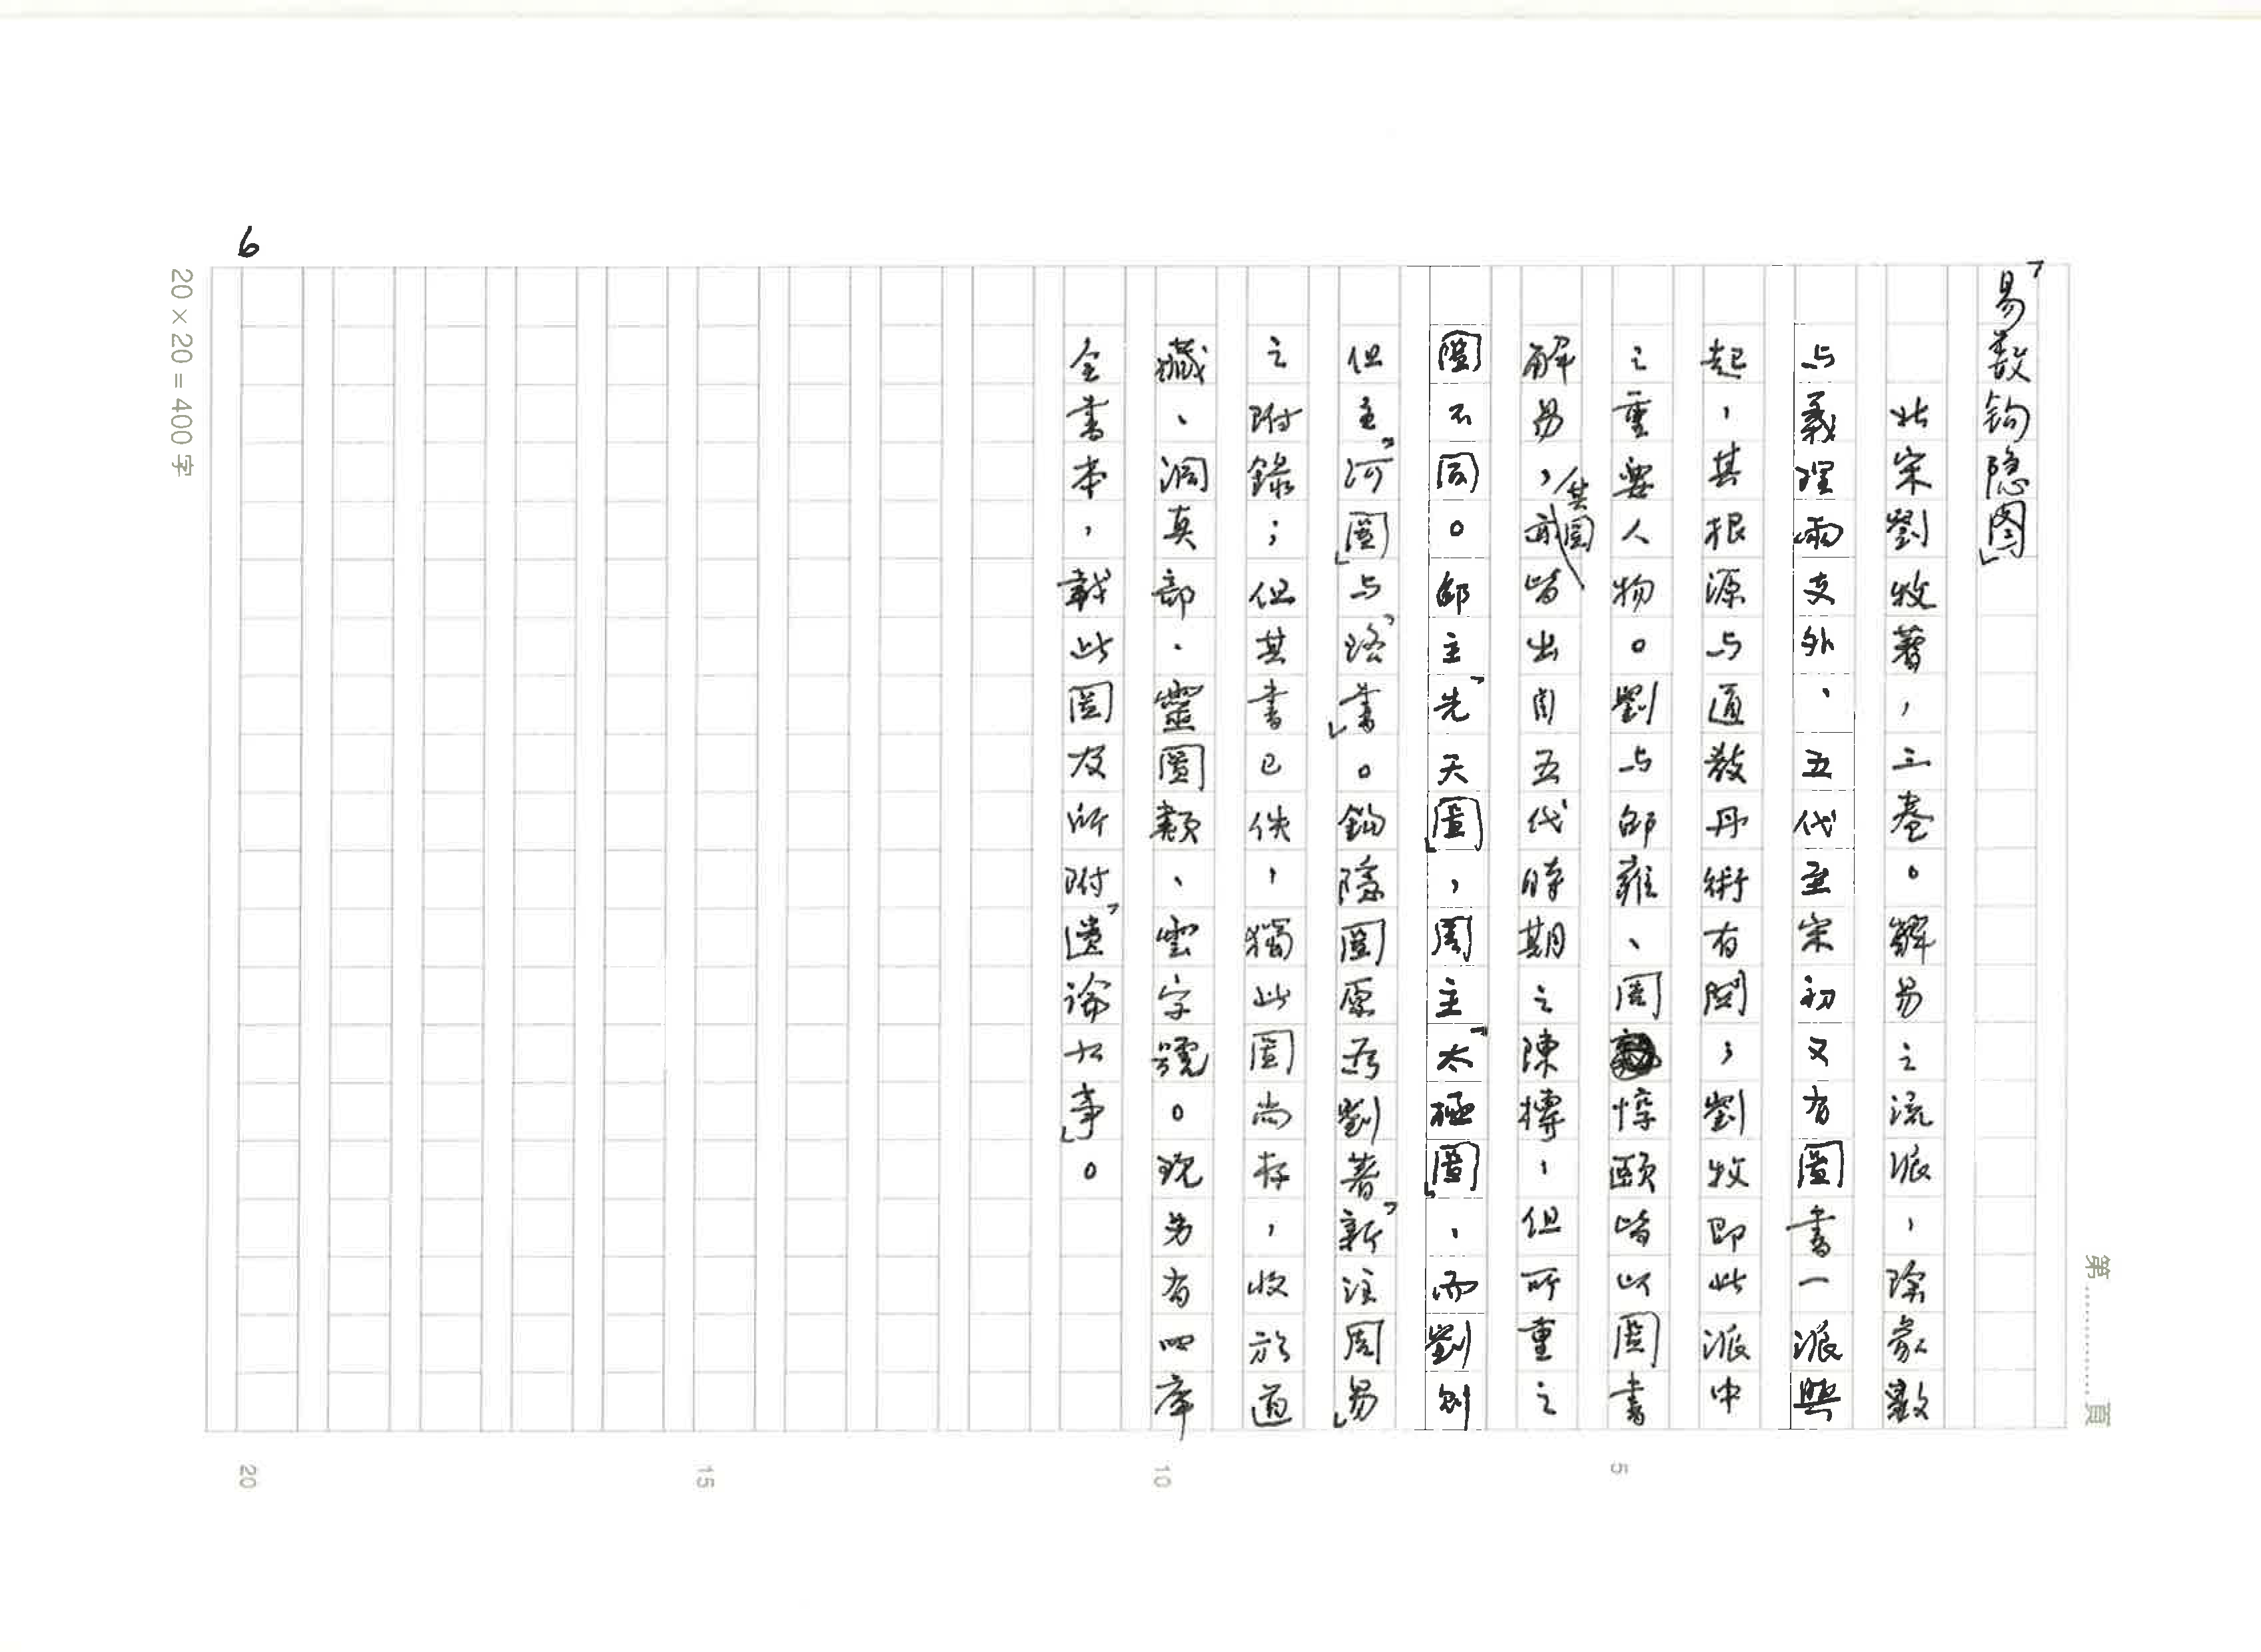 「易数钩隐图」
北宋劉牧著，三卷。解易之流派，除象數
与義理兩支外，五代至宋初又有圖書一派興
起，其根源与道教丹術有関，劉牧即此派中
之重要人物。劉与邵雍、周惇頤皆以圖書
解易，其圖皆出自五代時期之陳摶，但所重之
圖不同。邵主「先天圖」，周主「太極圖」，而劉則
但主「河圖」与「洛書」。鉤隱圖原為劉著「新注周易」
之附錄；但其書已佚，獨此圖尚存，收於道
藏、洞真部、靈圖類、雲字號。現另有四庫
全書本，載此圖及所附「遺論九事」。
6
20×20=400字
第 頁
5
10
15
20